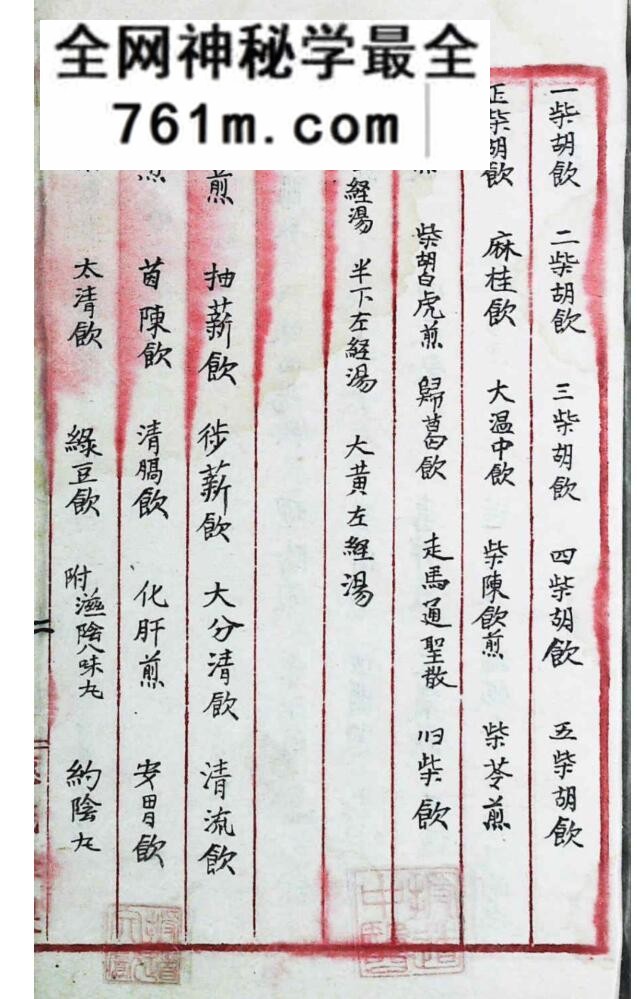 全网神秘学最全
761m.com
一柴胡飲 二柴胡飲 三柴胡飲 四柴胡飲 五柴胡飲
正柴胡飲 麻桂飲 大温中飲 柴陳飲煎 柴苓煎
柴胡白虎煎 歸葛飲 走馬通聖散 旧柴飲
経湯 半下左経湯 大黄左経湯
煎 抽薪飲 徙薪飲 大分清飲 清流飲
茵陳飲 清膈飲 化肝煎 安胃飲
太清飲 綠豆飲 附滋陰八味丸 約陰丸